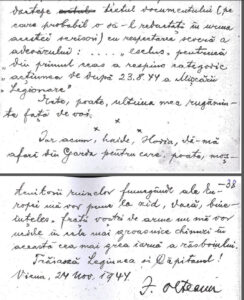 dartepe actului textul documentului (pe
care probabil o să-l redactați în urma
acestei scrisori) cu respectarea severă a
adevărului: ..... "exclus, pentrucă
din primul ceas a respins categoric
"acțiunea de după 23.8.44 a Mișcării
Legionare"
Iată, poate, ultima mea rugămin-
te față de voi.
x x x
Iar acum, haide, Horia, dă-mă
afară din Garda pentru care, poate, moș-
-38
tenitorii ruinelor fumegânde ale Eu-
ropei mă vor pune la zid, dacă, bine-
înțeles, frații voștri de arme nu mă vor
ucide în cele mai groaznice chinuri în
această cea mai grea iarnă a războiului.
Trăiască Legiunea și Căpitanul!
Viena, 24 Nov. 1944